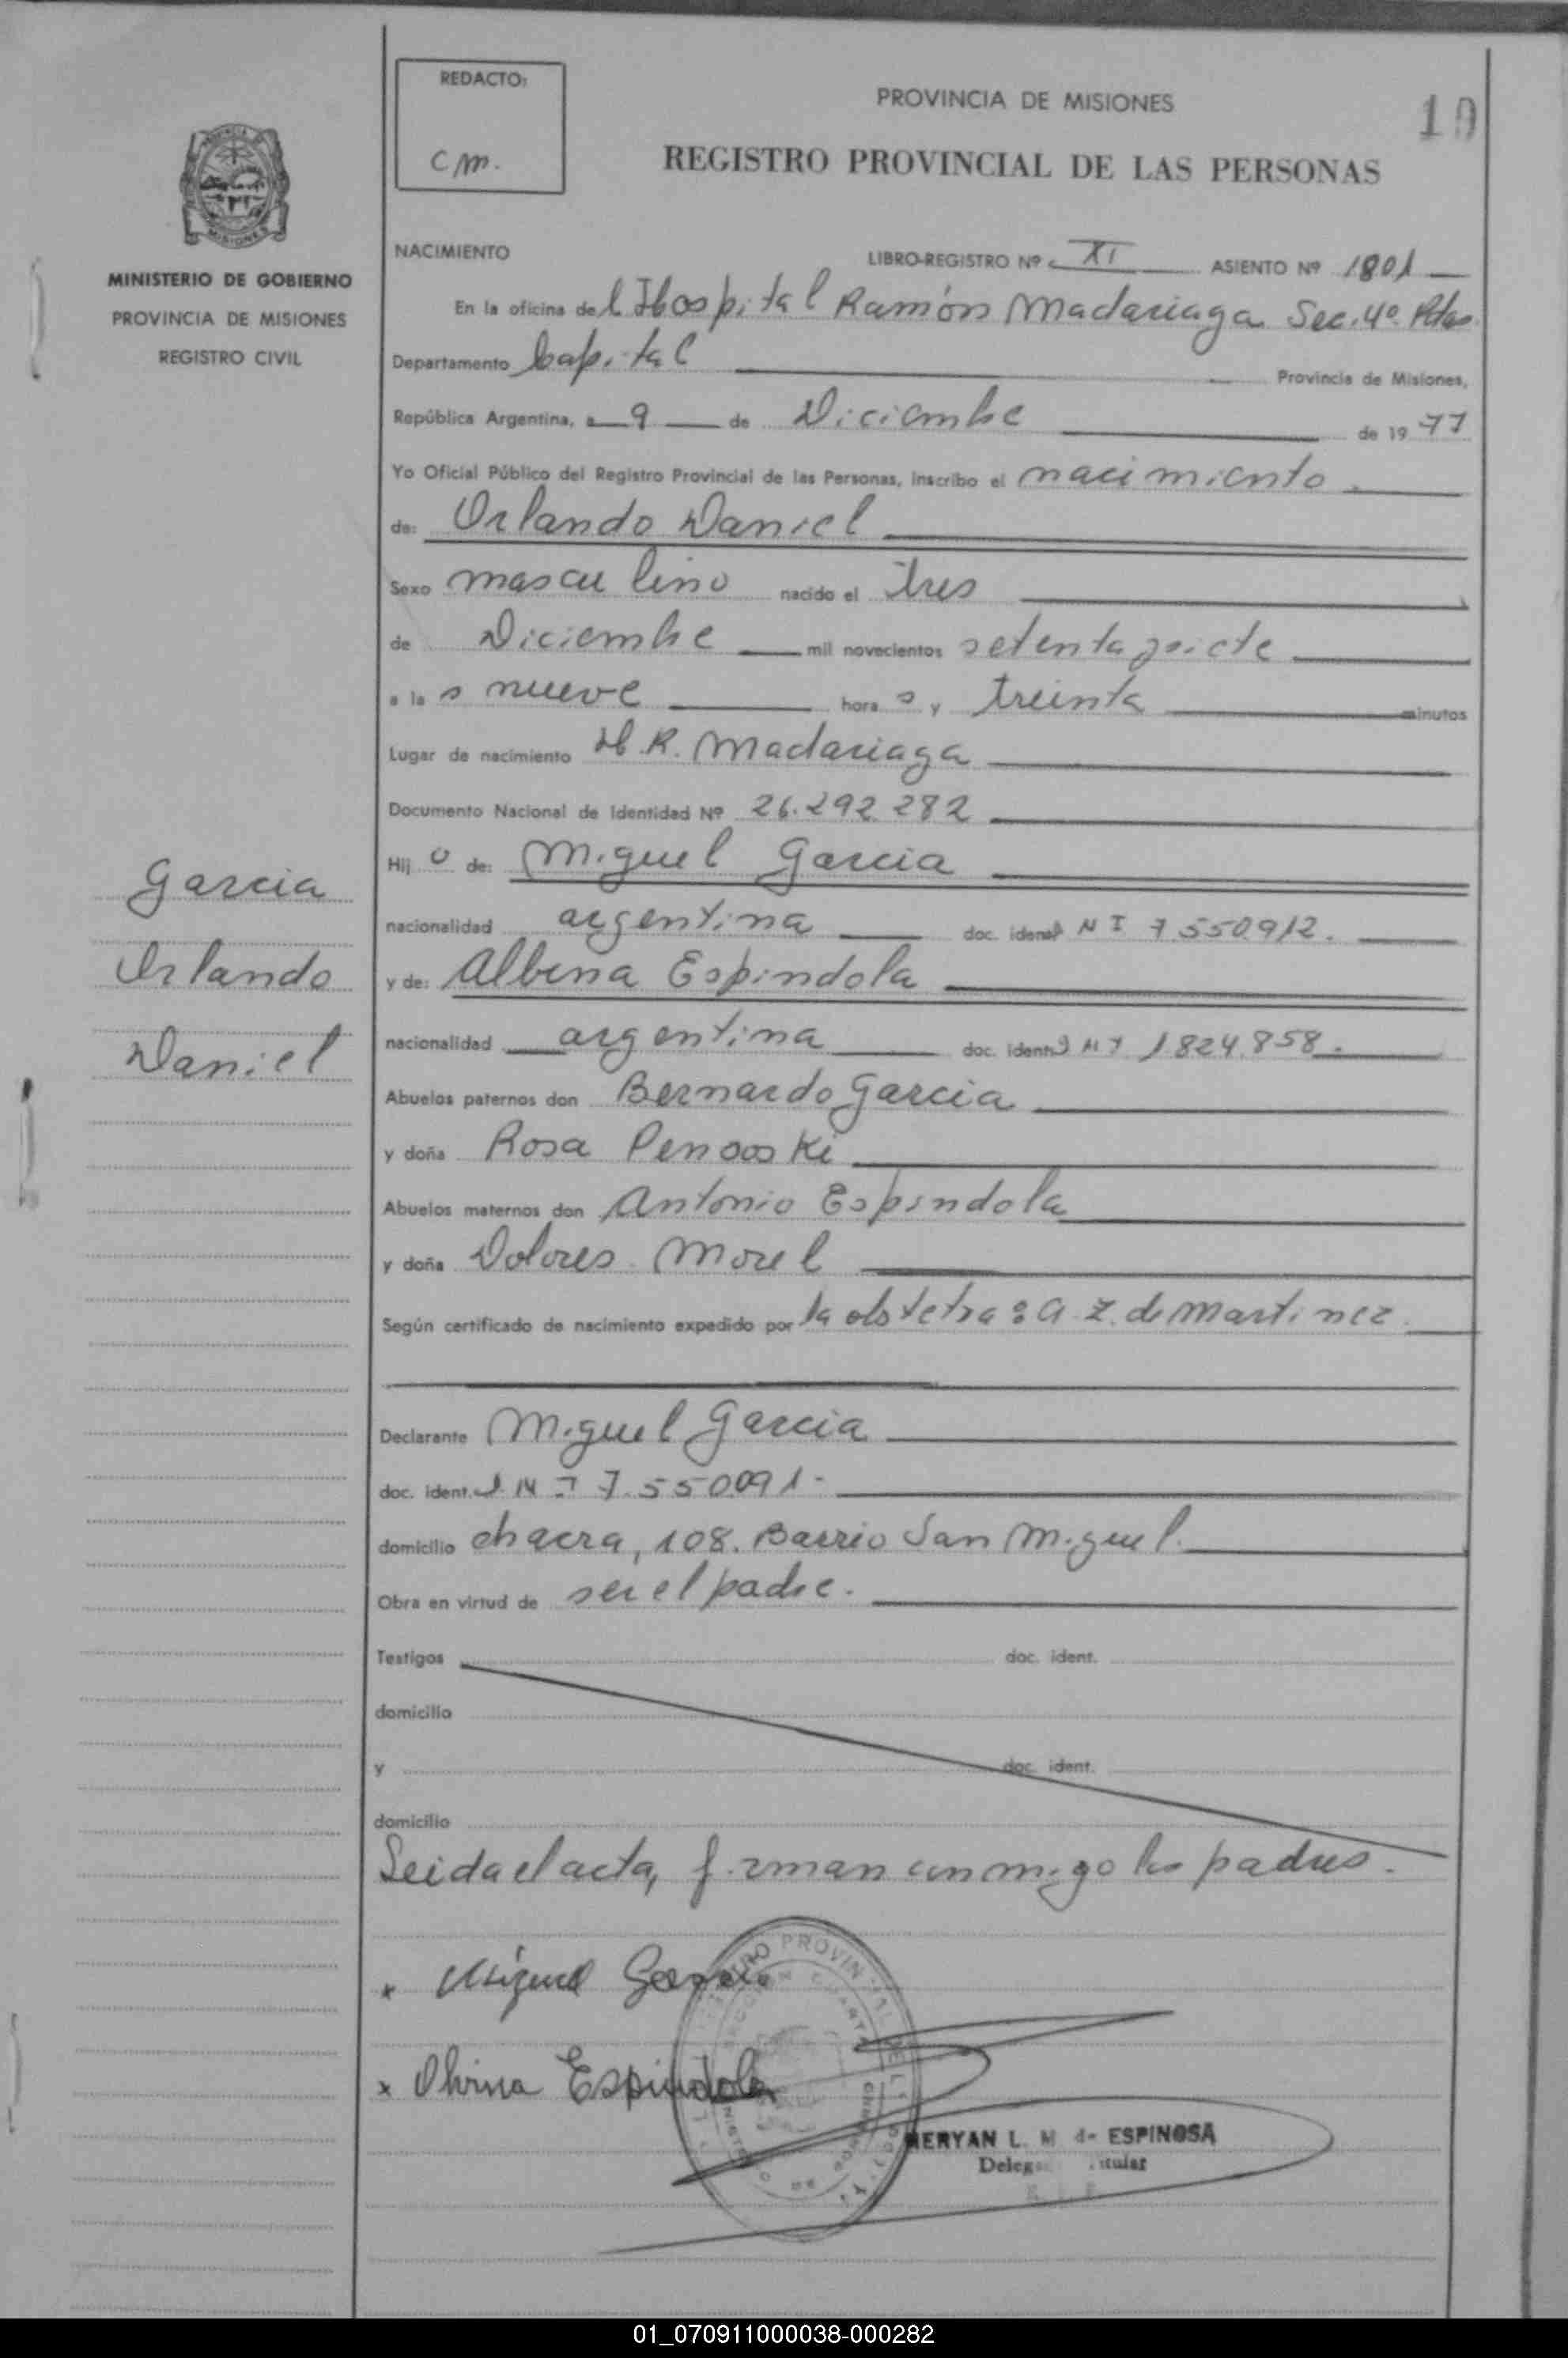 REDACTO:
C M.
PROVINCIA DE MISIONES
19
REGISTRO PROVINCIAL DE LAS PERSONAS
MINISTERIO DE GOBIERNO
PROVINCIA DE MISIONES
REGISTRO CIVIL
NACIMIENTO LIBRO-REGISTRO Nº XI ASIENTO Nº 1801
En la oficina del Hospital Ramón Madariaga Sec. 4º Pdas
Departamento Capital Provincia de Misiones,
República Argentina, a 9 de Diciembre de 1977
Yo Oficial Público del Registro Provincial de las Personas, inscribo el nacimiento
de: Orlando Daniel
Sexo masculino nacido el tres
de Diciembre mil novecientos setenta y siete
a las nueve horas y treinta minutos
Lugar de nacimiento H. R. Madariaga
Documento Nacional de Identidad Nº 26.292.282
Hijo de: Miguel Garcia
nacionalidad argentina doc. ident. M I 7.550.912.
y de: Albina Espindola
nacionalidad argentina doc. ident. M I 1.824.858.
Abuelos paternos don Bernardo Garcia
y doña Rosa
Abuelos maternos don Antonio Espindola
y doña Dolores Morel
Según certificado de nacimiento expedido por la obstetra: A. Z. de Martinez.
Declarante Miguel Garcia
doc. ident. M I 7.550091-
domicilio chacra, 108. Barrio San Miguel.
Obra en virtud de ser el padre.
Testigos doc. ident.
domicilio
y doc. ident.
domicilio
Leida el acta, firman conmigo los padres.
x Miguel Garcia
x Olvina Espindola
MERYAN L. M de ESPINOSA
Garcia
Orlando
Daniel
01_070911000038-000282